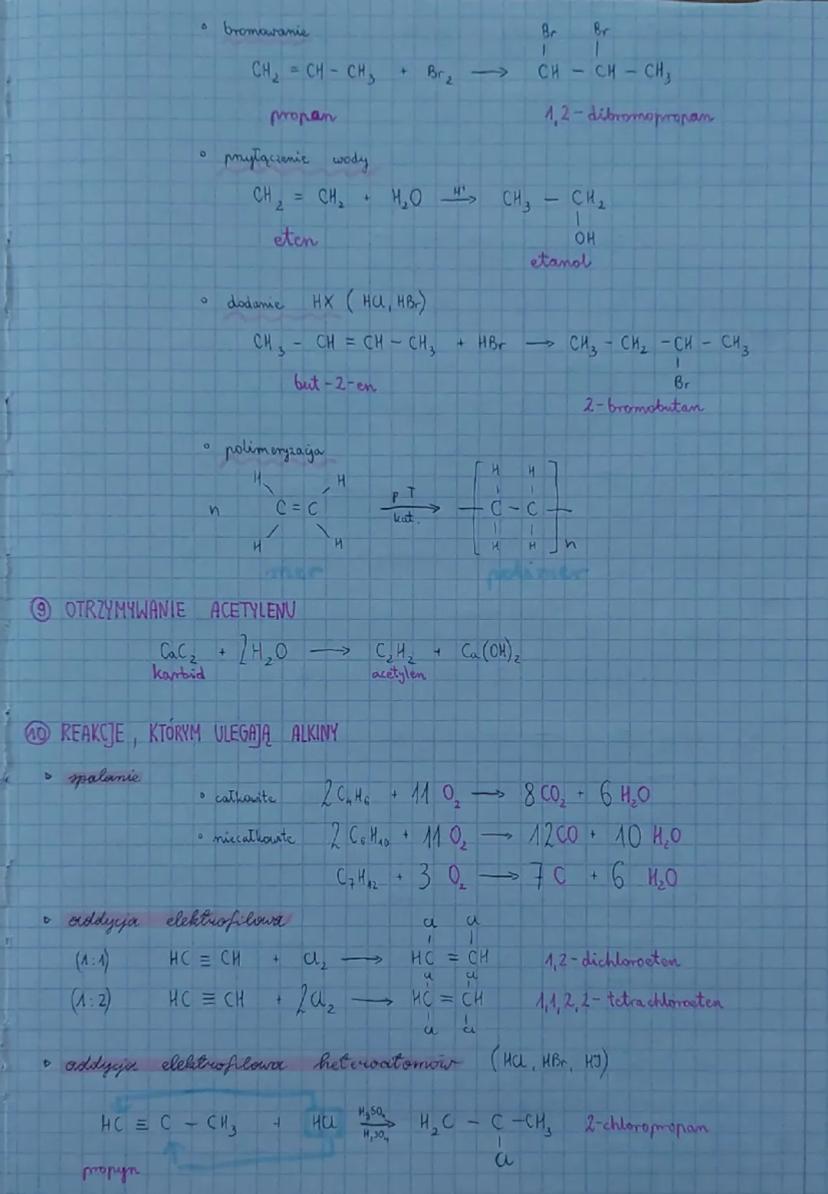 • bromowanie
Br Br
CH₂ = CH – CH₃ + Br₂ → CH – CH – CH₃
propan 1,2-dibromopropan
• przyłączenie wody
CH₂ = CH₂ + H₂O H⁺→ CH₃ – CH₂
OH
eten etanol
• dodanie HX (HCl, HBr)
CH₃ – CH = CH – CH₃ + HBr → CH₃ – CH₂ – CH – CH₃
Br
but-2-en 2-bromobutan
• polimeryzacja
H H H H
p T
n C = C → [ – C – C – ]n
kat.
H H H H
mer polimer
⑨ OTRZYMYWANIE ACETYLENU
CaC₂ + 2H₂O → C₂H₂ + Ca(OH)₂
karbid acetylen
⑩ REAKCJE, KTÓRYM ULEGAJĄ ALKINY
▫ spalanie
• całkowite 2C₄H₆ + 11 O₂ → 8CO₂ + 6 H₂O
• niecałkowite 2C₆H₁₀ + 11 O₂ → 12CO + 10 H₂O
C₇H₁₂ + 3 O₂ → 7 C + 6 H₂O
▫ addycja elektrofilowa
Cl Cl
(1:1) HC ≡ CH + Cl₂ → HC = CH 1,2-dichloroeten
Cl Cl
(1:2) HC ≡ CH + 2Cl₂ → HC = CH 1,1,2,2-tetrachloroeten
Cl Cl
▫ addycja elektrofilowa heteroatomów (HCl, HBr, HJ)
H₂SO₄
HC ≡ C – CH₃ + HCl → H₂C – C – CH₃ 2-chloropropan
H₂SO₄
Cl
propyn